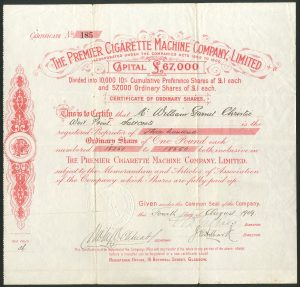 Certificate No. 185
THE PREMIER CIGARETTE MACHINE COMPANY, LIMITED
INCORPORATED UNDER THE COMPANIES ACTS 1862 TO 1900.
CAPITAL £67,000
Divided into 10,000 10% Cumulative Preference Shares of £1 each
and 57,000 Ordinary Shares of £1 each.
CERTIFICATE OF ORDINARY SHARES.
This is to Certify that Mr William Garnet Christie
is the
registered Proprietor of Three hundred
Ordinary Share of One Pound each
numbered to both inclusive in
THE PREMIER CIGARETTE MACHINE COMPANY, LIMITED.
subject to the Memorandum and Articles of Association
of the Company which Shares are fully paid up.
Given under the Common Seal of the Company,
this day of August 1904
DIRECTOR
DIRECTOR
SECRETARY
REGISTERED OFFICE, 19 BOTHWELL STREET, GLASGOW.